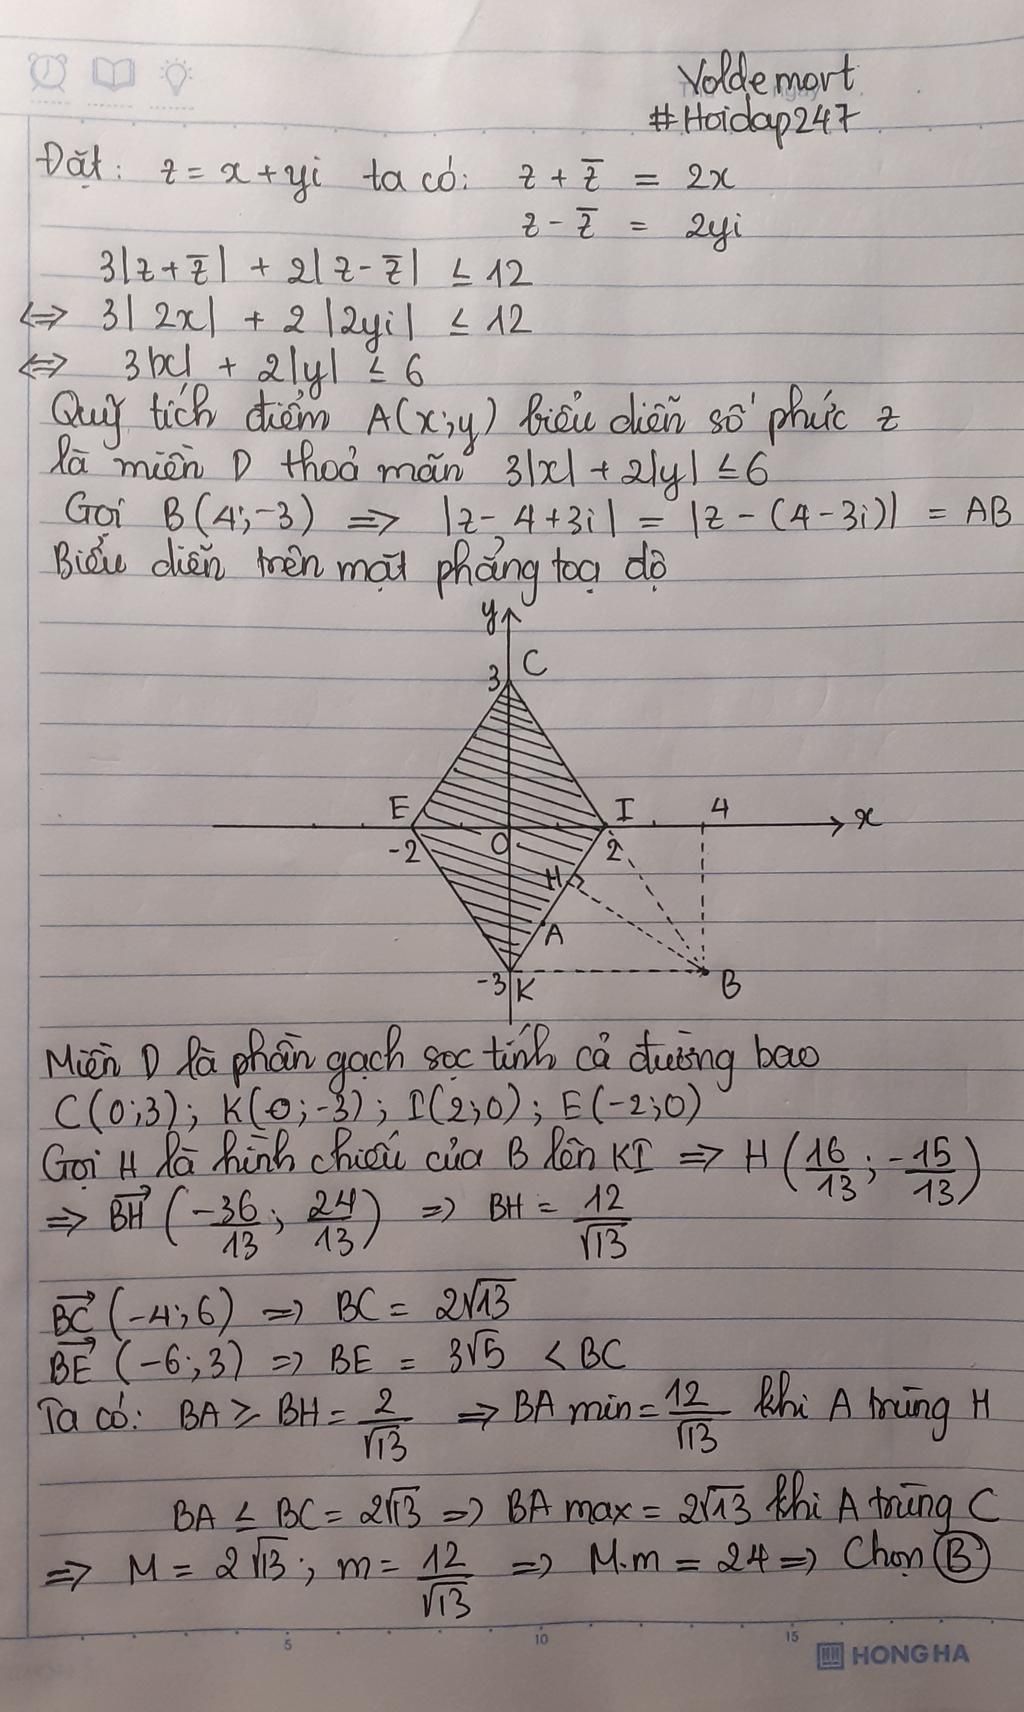 Voldemort
#Hoidap247
Đặt: z = x + yi ta có: z + z̄ = 2x
z - z̄ = 2yi
3|z + z̄| + 2|z - z̄| ≤ 12
⇔ 3|2x| + 2|2yi| ≤ 12
⇔ 3|x| + 2|y| ≤ 6
Quỹ tích điểm A(x;y) biểu diễn số phức z
là miền D thoả mãn 3|x| + 2|y| ≤ 6
Gọi B(4;-3) => |z - 4 + 3i| = |z - (4 - 3i)| = AB
Biểu diễn trên mặt phẳng toạ độ
y
3 C
E I 4 x
-2 O 2
H
A
-3 K B
Miền D là phần gạch sọc tính cả đường bao
C(0;3); K(0;-3); I(2;0); E(-2;0)
Gọi H là hình chiếu của B lên KI => H(16/13; -15/13)
=> BH→(-36/13; 24/13) => BH = 12/√13
BC→(-4;6) => BC = 2√13
BE→(-6;3) => BE = 3√5 < BC
Ta có: BA ≥ BH = 2/√13 => BA min = 12/√13 khi A trùng H
BA ≤ BC = 2√13 => BA max = 2√13 khi A trùng C
=> M = 2√13; m = 12/√13 => M.m = 24 => Chọn B
5 10 15
HONG HA